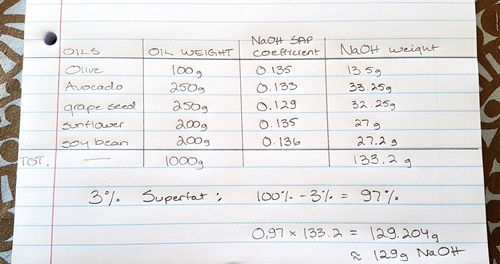 OILS OIL WEIGHT NaOH SAP coefficient NaOH weight
Olive 100g 0.135 13.5g
Avocado 250g 0.133 33.25g
grape seed 250g 0.129 32.25g
sunflower 200g 0.135 27g
soy bean 200g 0.136 27.2g
TOT. — 1000g 133.2g
3% Superfat: 100% - 3% = 97%
0,97 × 133.2 = 129.204g
≈ 129g NaOH